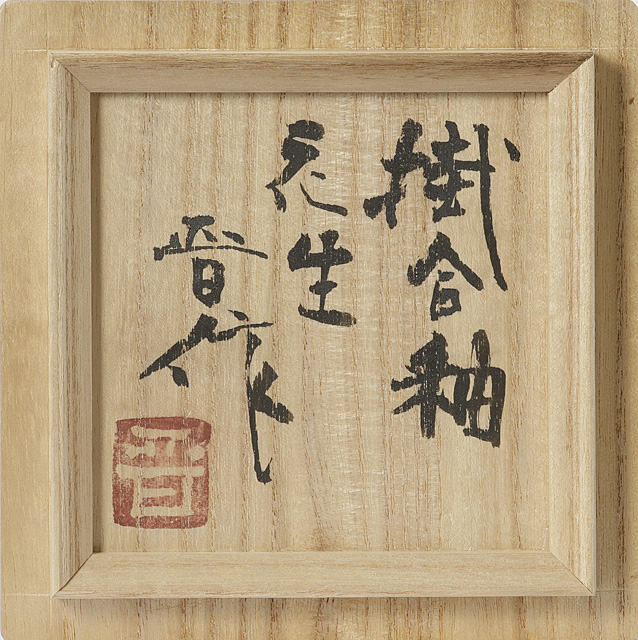 掛合釉
花生
晋作
晋